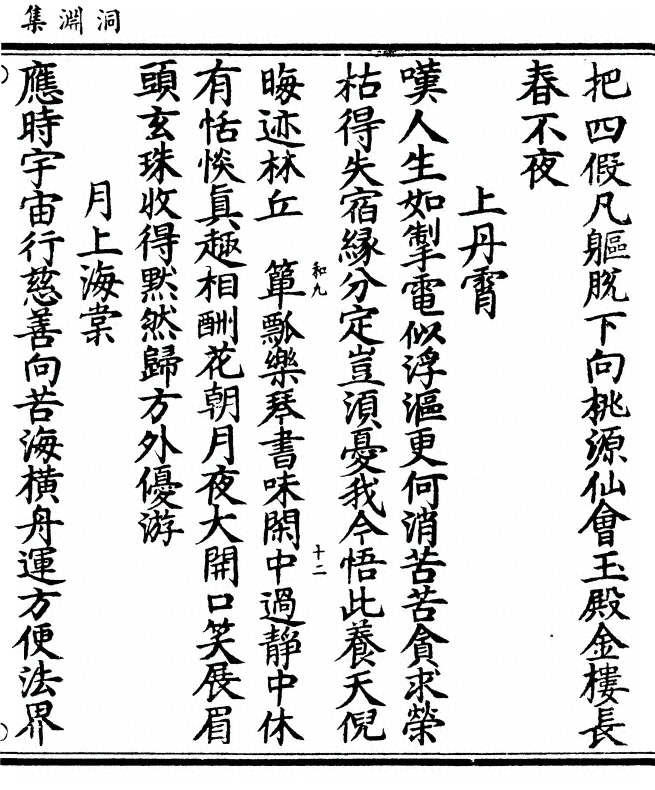 洞淵集
把四假凡軀脫下向桃源仙會玉殿金樓長
春不夜
上丹霄
嘆人生如掣電似浮漚更何消苦苦貪求榮
枯得失宿緣分定豈須憂我今悟此養天倪
晦迹林丘　簞瓢樂琴書味閑中過靜中休
和九
十二
有恬惔真趣相酬花朝月夜大開口笑展眉
頭玄珠收得默然歸方外優游
月上海棠
應時宇宙行慈善向苦海橫舟運方便法界